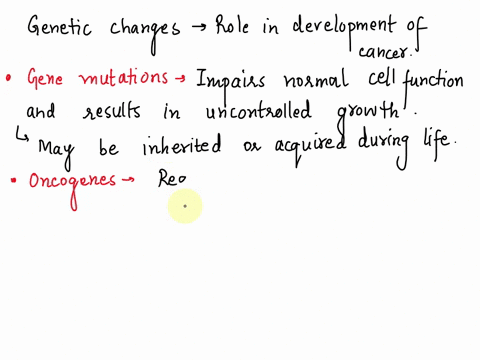 Genetic changes → Role in development of
cancer.
• Gene mutations → Impairs normal cell function
and results in uncontrolled growth.
↳ May be inherited or acquired during life.
• Oncogenes → Reg